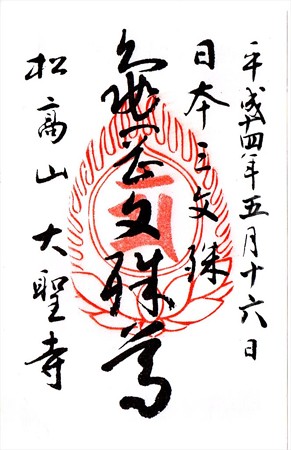 平成十四年五月十六日
日本三文殊
亀岡文殊尊
松高山大聖寺